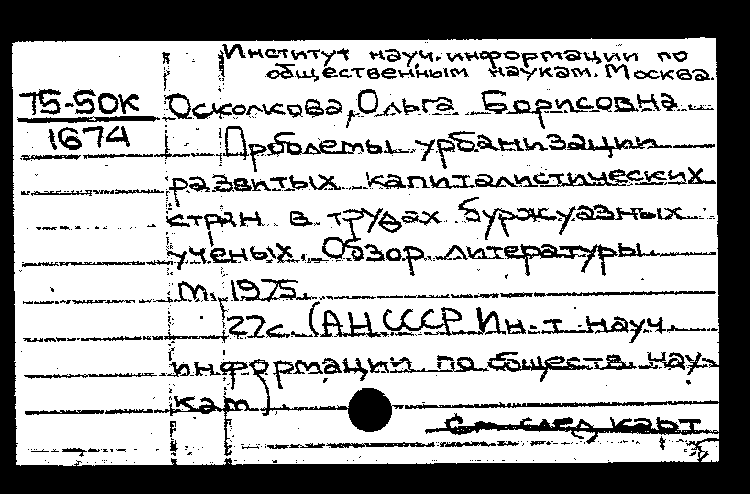 Институт науч. информации по
общественным наукам. Москва.
75-50к Осколкова, Ольга Борисовна.
1674 Проблемы урбанизации
развитых капиталистических
стран в трудах буржуазных
ученых. Обзор литературы.
М., 1975.
27с. (АН СССР Ин-т науч.
информации по обществ. нау-
кам).
См след карт